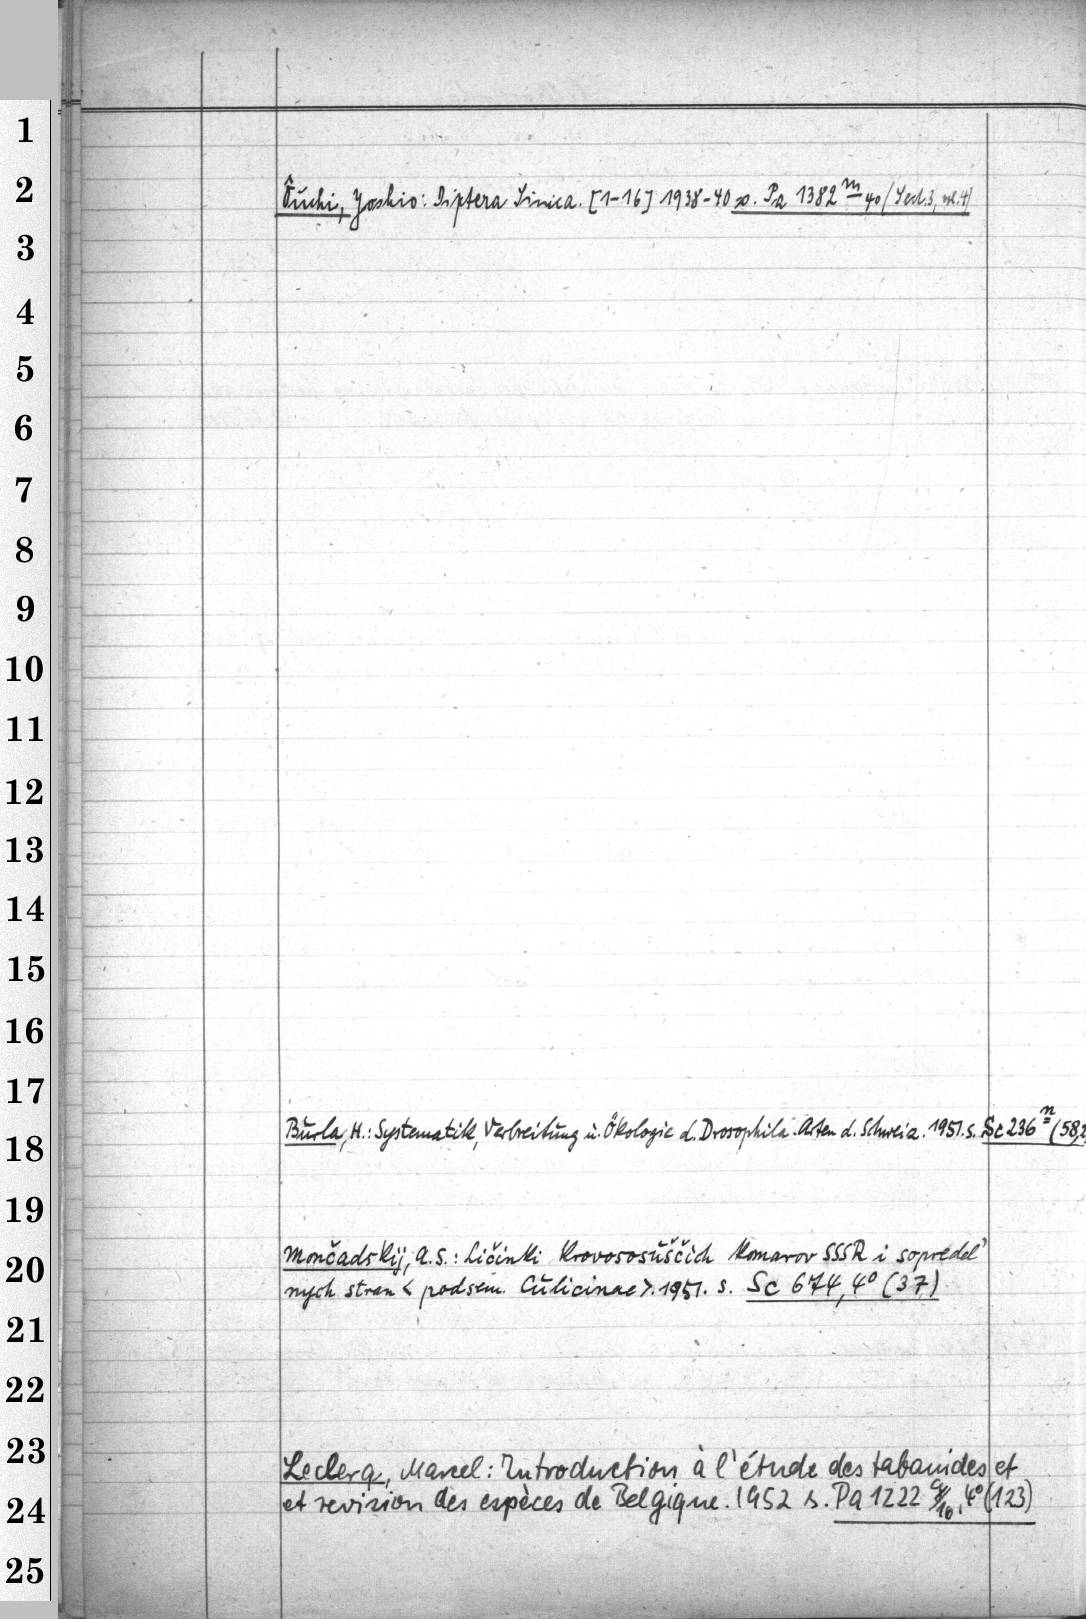 1
2
Ôuchi, Yoshio: Diptera Sinica. [1-16] 1938-40 s. Pa 1382 m 40 (Sect.3, vol.4)
3
4
5
6
7
8
9
10
11
12
13
14
15
16
17
Burla, H.: Systematik, Verbreitung u. Ökologie d. Drosophila-Arten d. Schweiz. 1951. s. Sc 236 n (58,2
18
19
Mončadskij, A.S.: Ličinki krovososuščich komarov SSSR i sopredel'
20
nych stran < podsem. Culicinae >. 1951. s. Sc 674, 4° (37)
21
22
23
Leclerq, Marcel: Introduction à l'étude des tabanides et
24
et revision des espèces de Belgique. 1952 s. Pa 1222 /10, 4° (123)
25